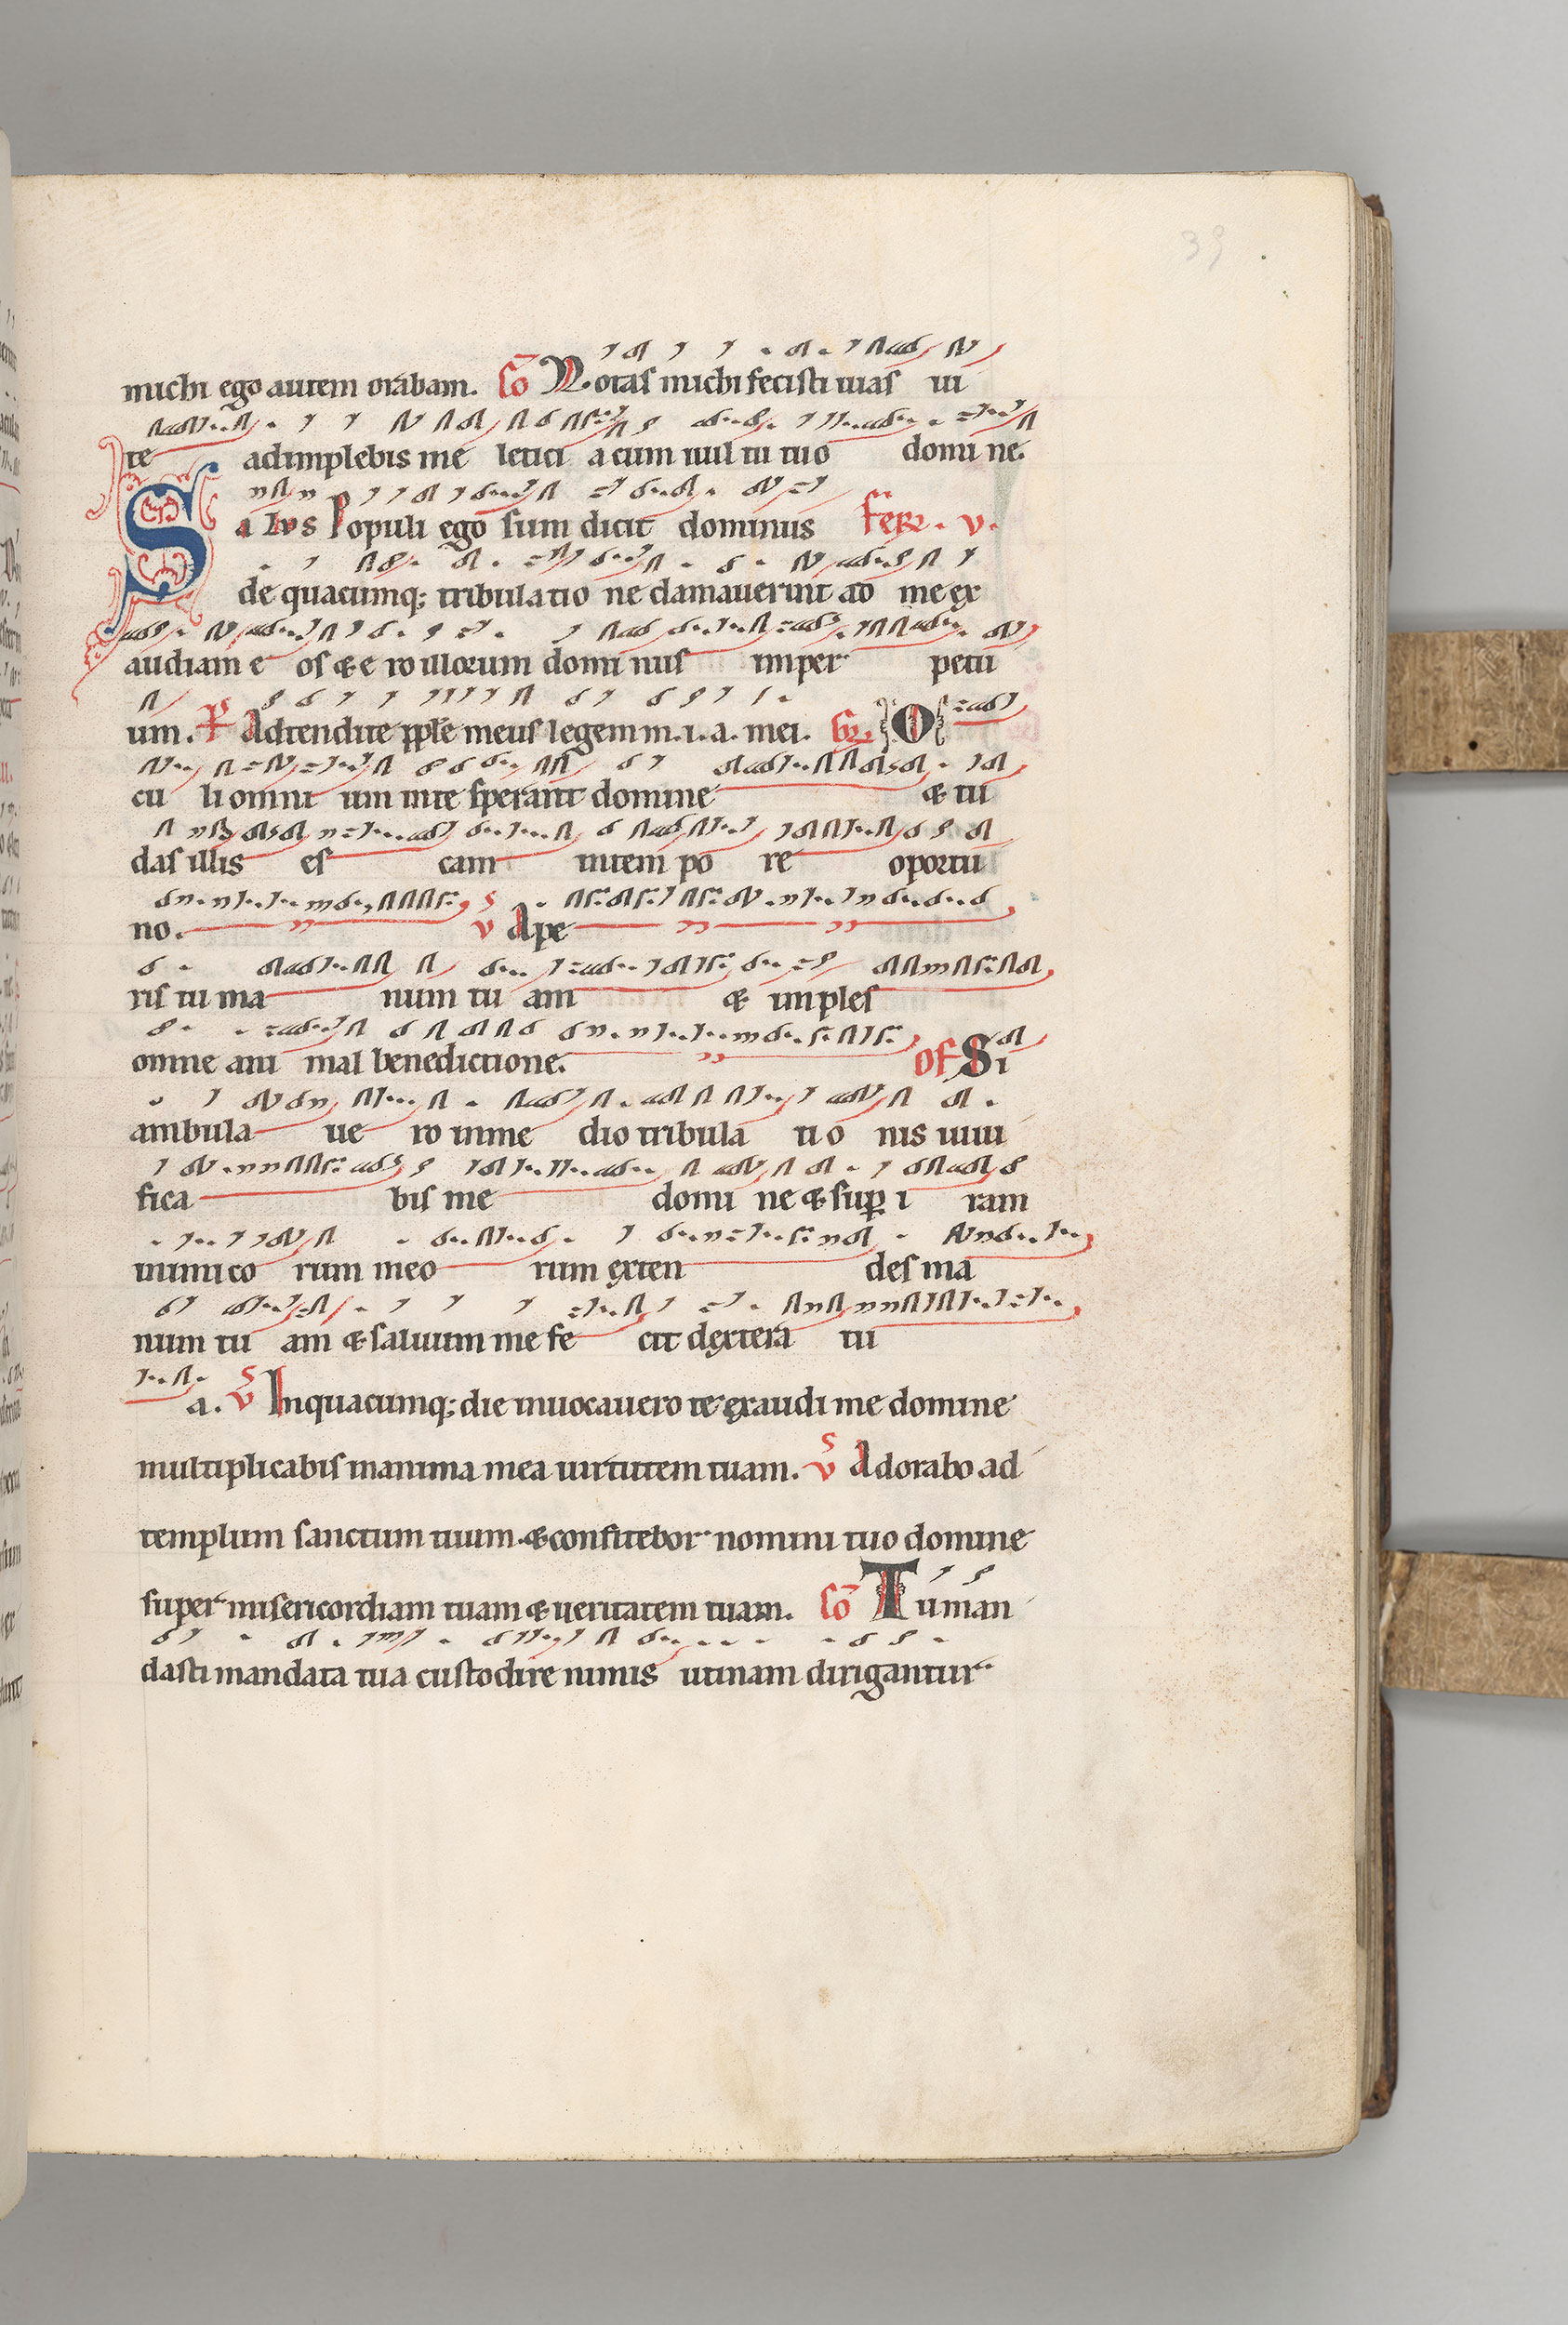 39
michi ego autem orabam. Co Notas michi fecisti uias ui
te adimplebis me letici a cum uul tu tuo domi ne.
Salvs populi ego sum dicit dominus fer. v.
de quacumq; tribulatio ne clamauerint ad me ex
audiam e os & e ro illorum domi nus imper petu
um. P Adtendite pple meus legem m. i. a. mei. Gr. O
cu li omni um in te sperant domine & tu
das illis es cam in tem po re oportu
no. v Ape
ris tu ma num tu am & imples
omne ani mal benedictione. Of Si
ambula ue ro in me dio tribula ti o nis uiui
fica bis me domi ne & sup i ram
inimico rum meo rum exten des ma
num tu am & saluum me fe cit dextera tu
a. v Inquacumq; die inuocauero te exaudi me domine
multiplicabis inanima mea uirtutem tuam. v Adorabo ad
templum sanctum tuum. & confitebor nomini tuo domine
super misericordiam tuam & ueritatem tuam. Co Tu man
dasti mandata tua custodire nimis utinam dirigantur